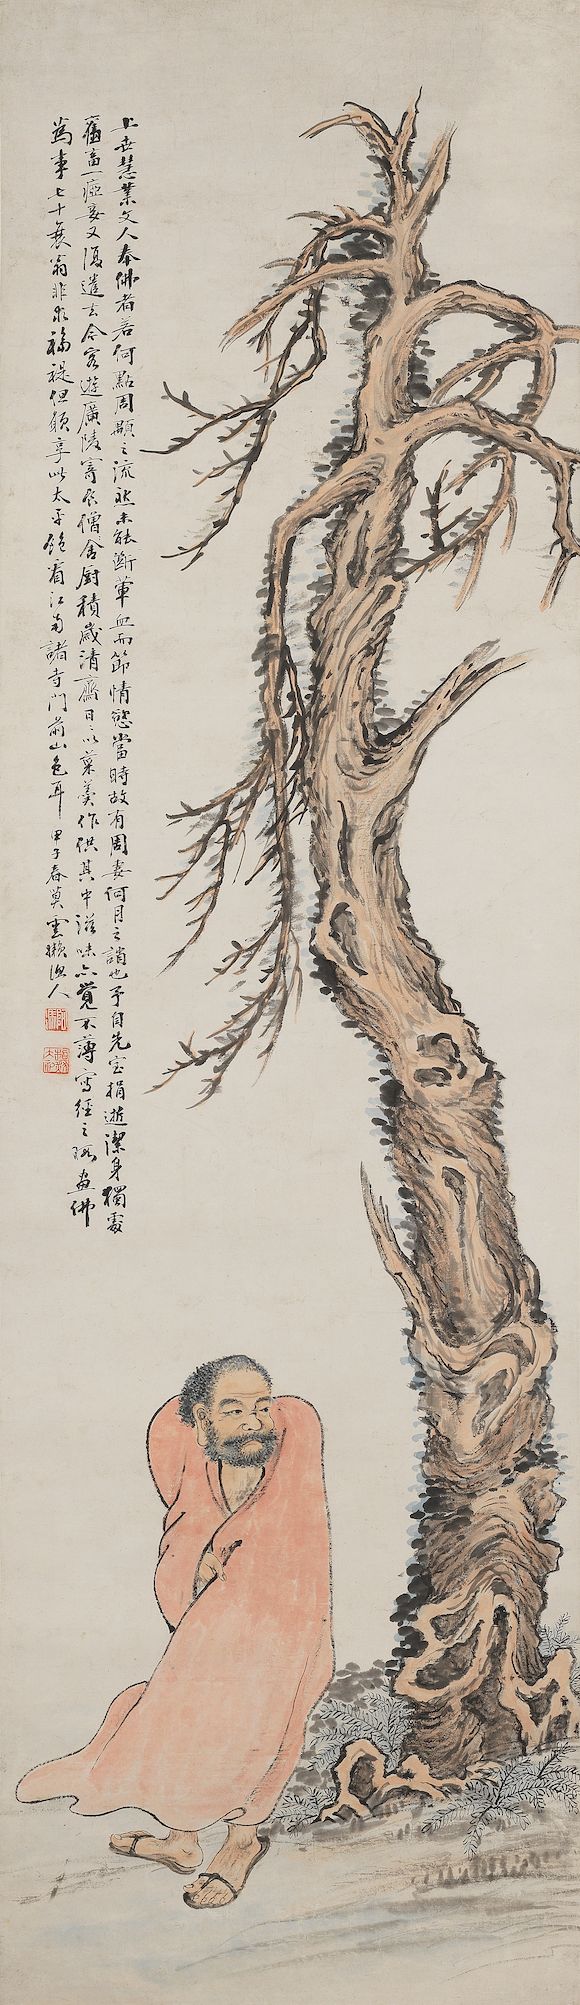 上世慧業文人奉佛者若何點周顒之流然未能斷葷血而節情慾當時故有周妻何肉之誚也予自先室捐逝潔身獨處
舊畜一瘂妾又復遣去今客遊廣陵寄食僧舍廚積歲清齋日以菜羹作供其中滋味亦覺不薄寫經之暇畫佛
為事七十衰翁非求福禔但願享此太平飽看江南諸寺門前山色耳甲子春莫雲